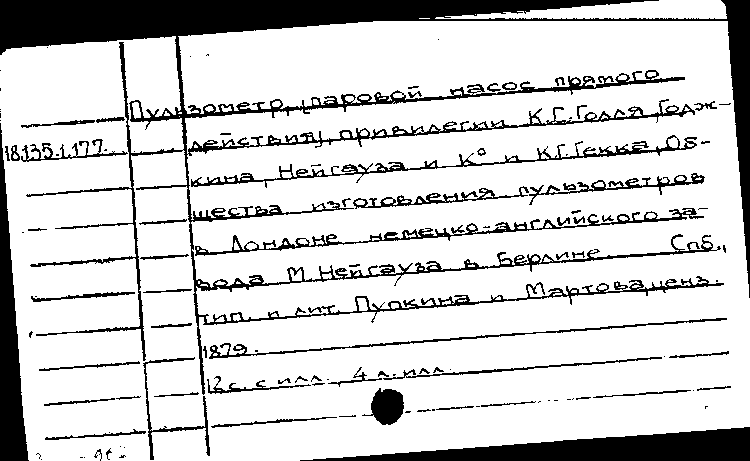 Пульзометр, (паровой насос прямого
18.135.1.177. действия), привилегии К.Г.Голля, Годж-
кина, Нейгауза и К° и К.Г.Гекка, Об-
щества изготовления пульзометров
в Лондоне немецко-английского за-
вода М.Нейгауза в Берлине. Спб.,
тип. и лит. Пупкина и Мартова, ценз.
1879.
12 с. с илл., 4 л. илл.